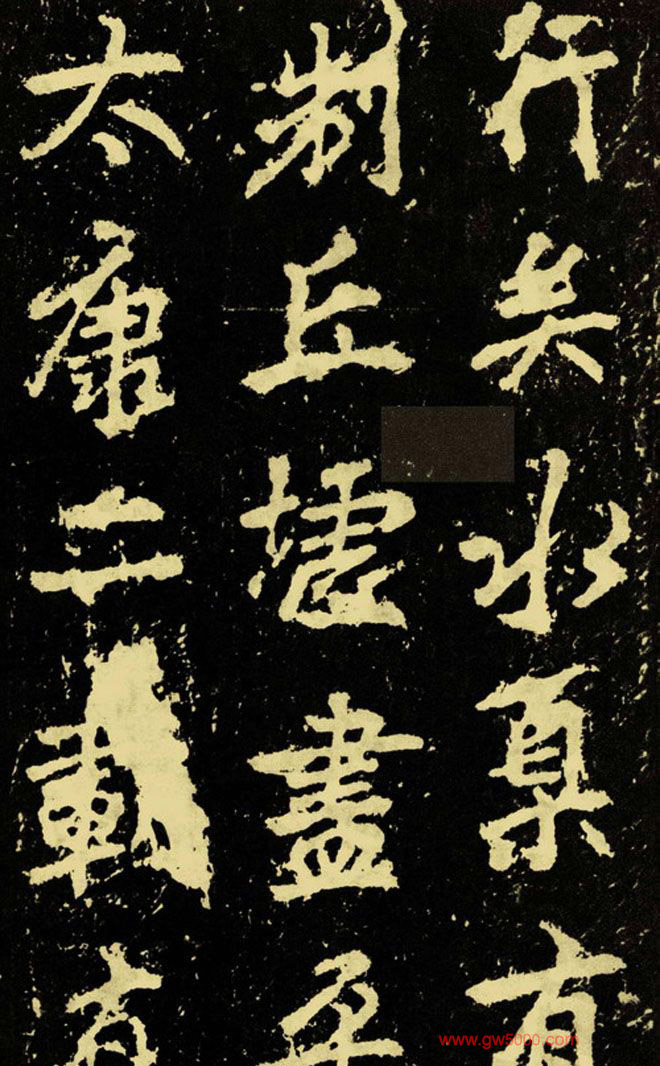 行矣水臬有
制丘墟盡平
太康二載有
www.gw5000.com